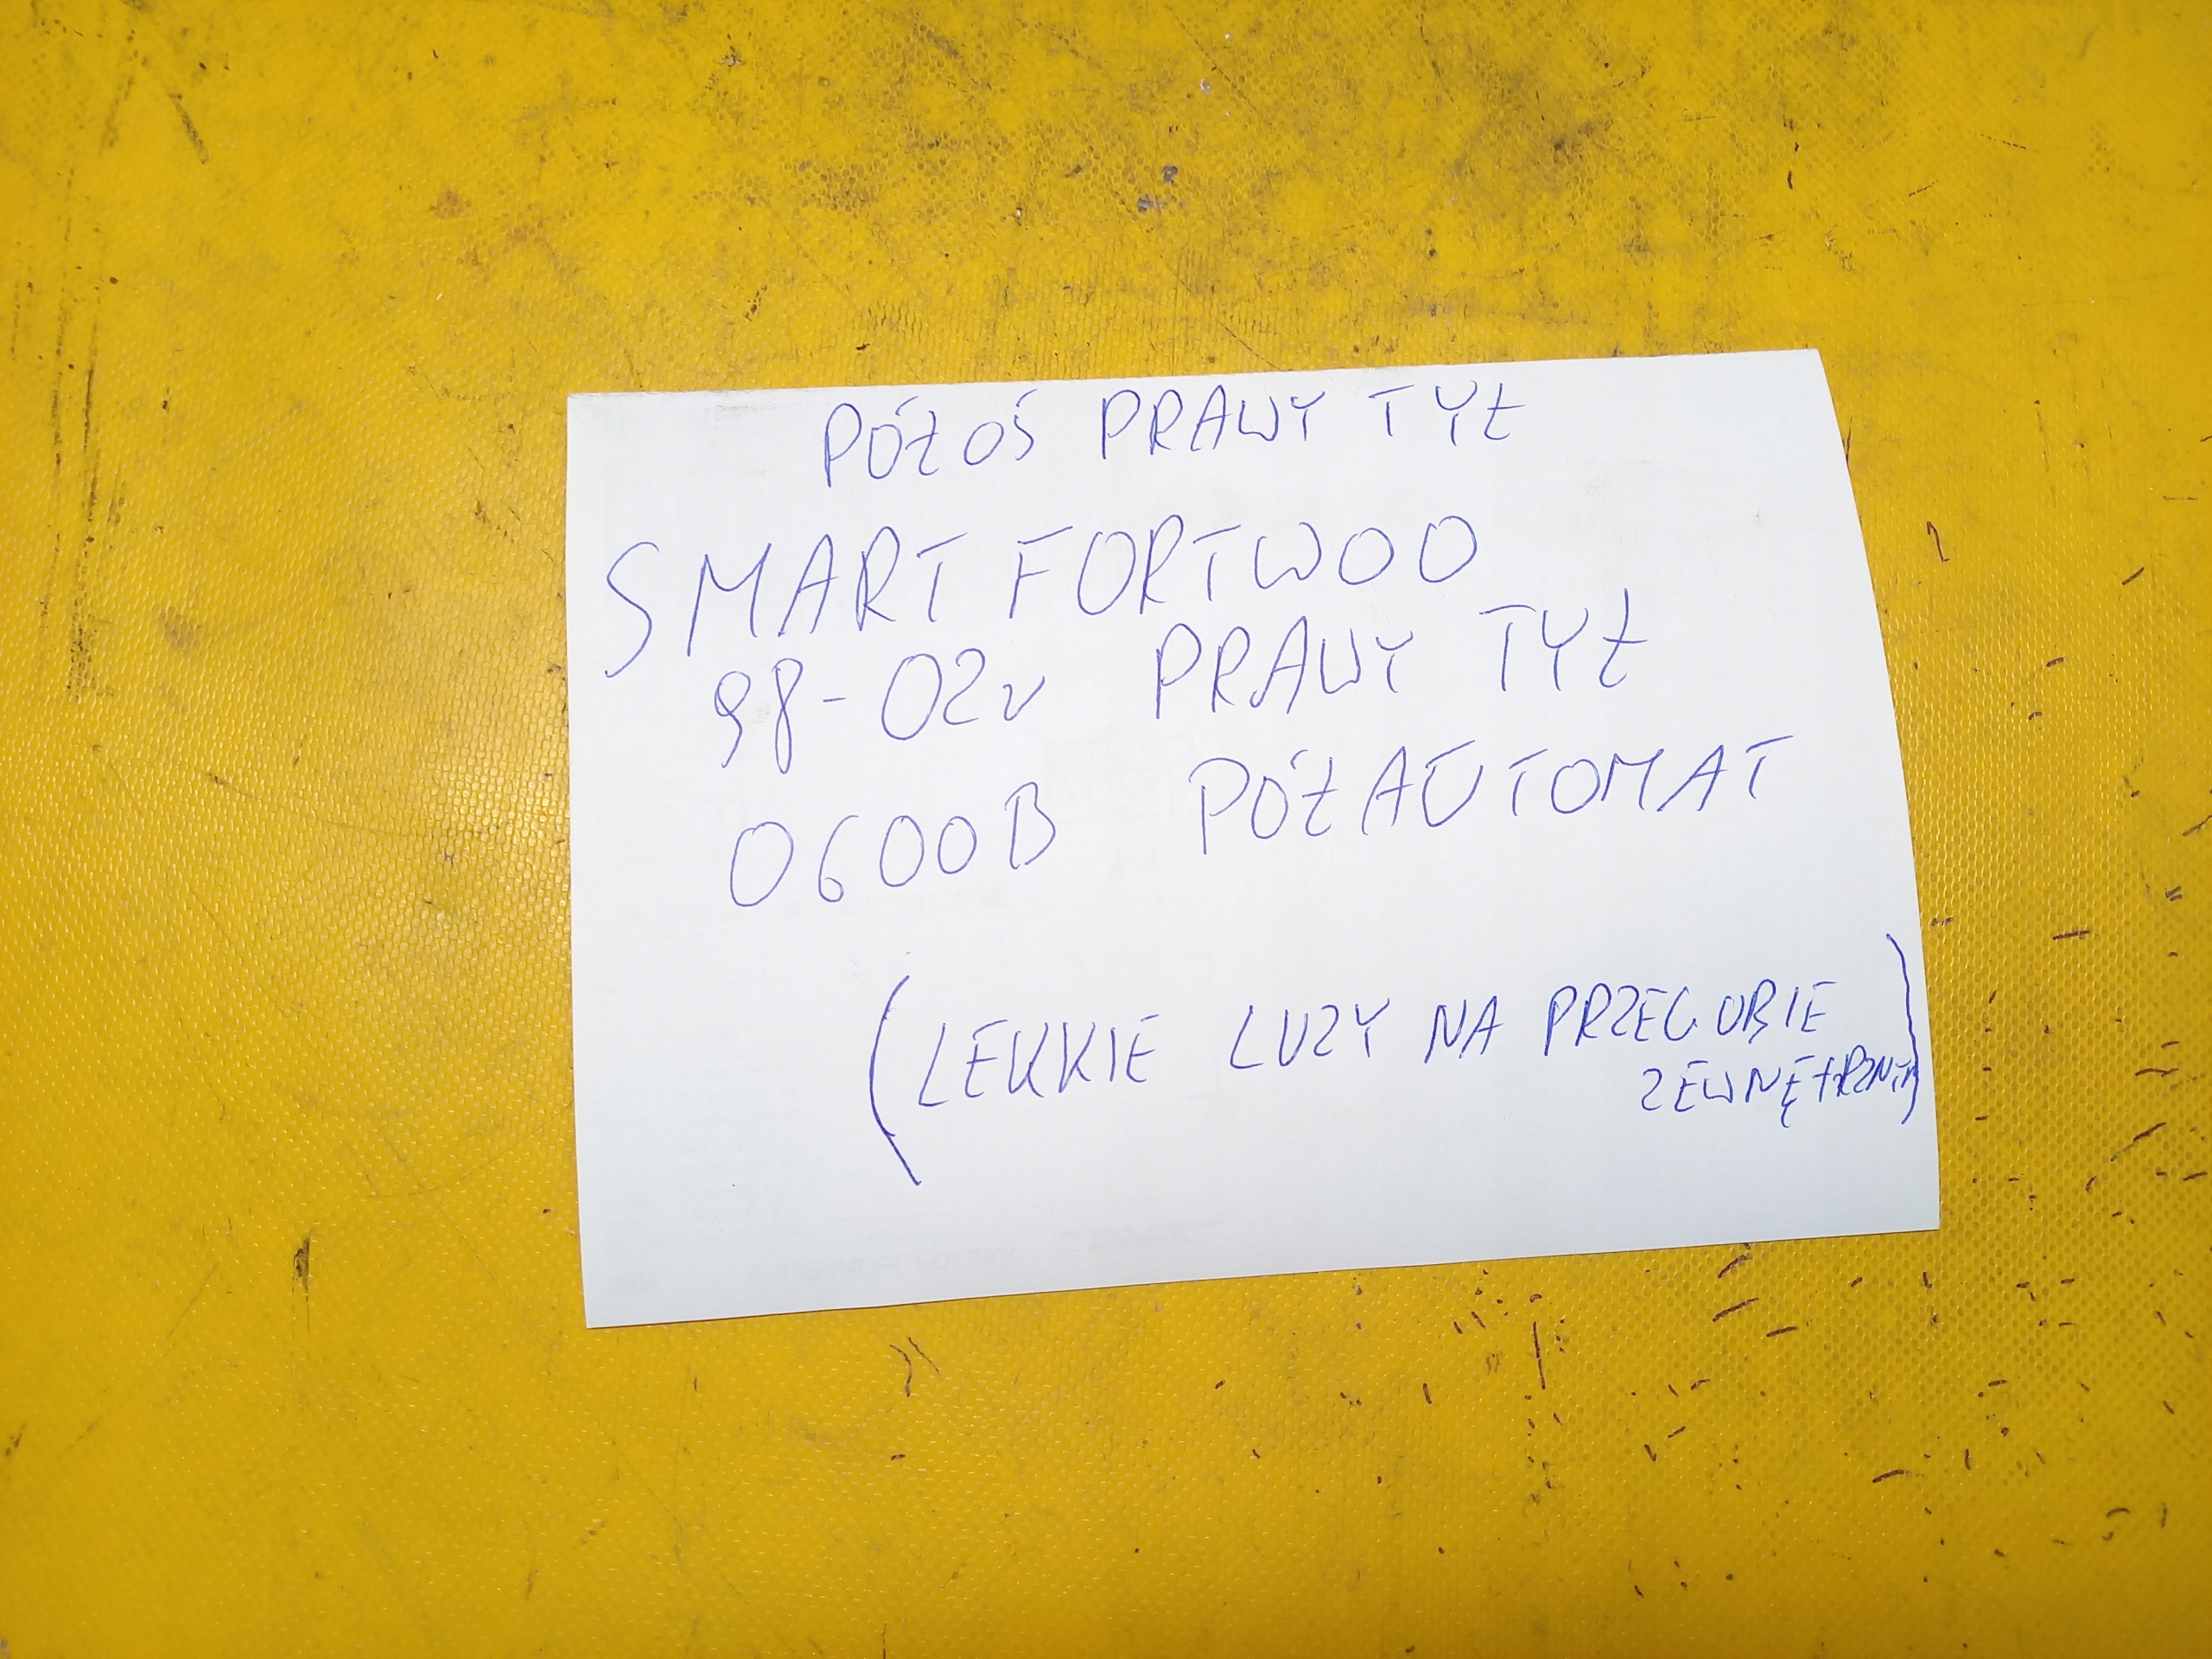 PÓŁOŚ PRAWY TYŁ
SMART FORTWOO
98-02r PRAWY TYŁ
0600B PÓŁAUTOMAT
(LEKKIE LUZY NA PRZEGUBIE
ZEWNĘTRZNYM)